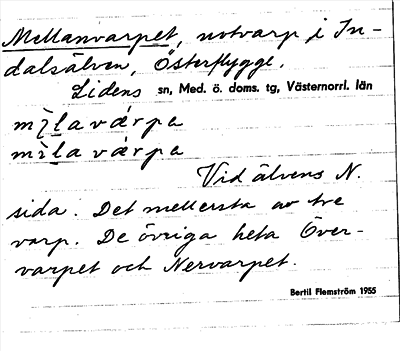 Mellanvarpet, notvarp i In-
dalsälven, Österflygge.
Lidens sn, Med. ö. doms. tg, Västernorrl. län
mìlavárpa
mìlavárpa
Vid älvens N.
sida. Det mellersta av tre
varp. De övriga heta Över-
varpet och Nervarpet.
Bertil Flemström 1955